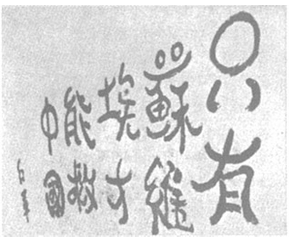 只有
蘇維
埃才
能救
中國